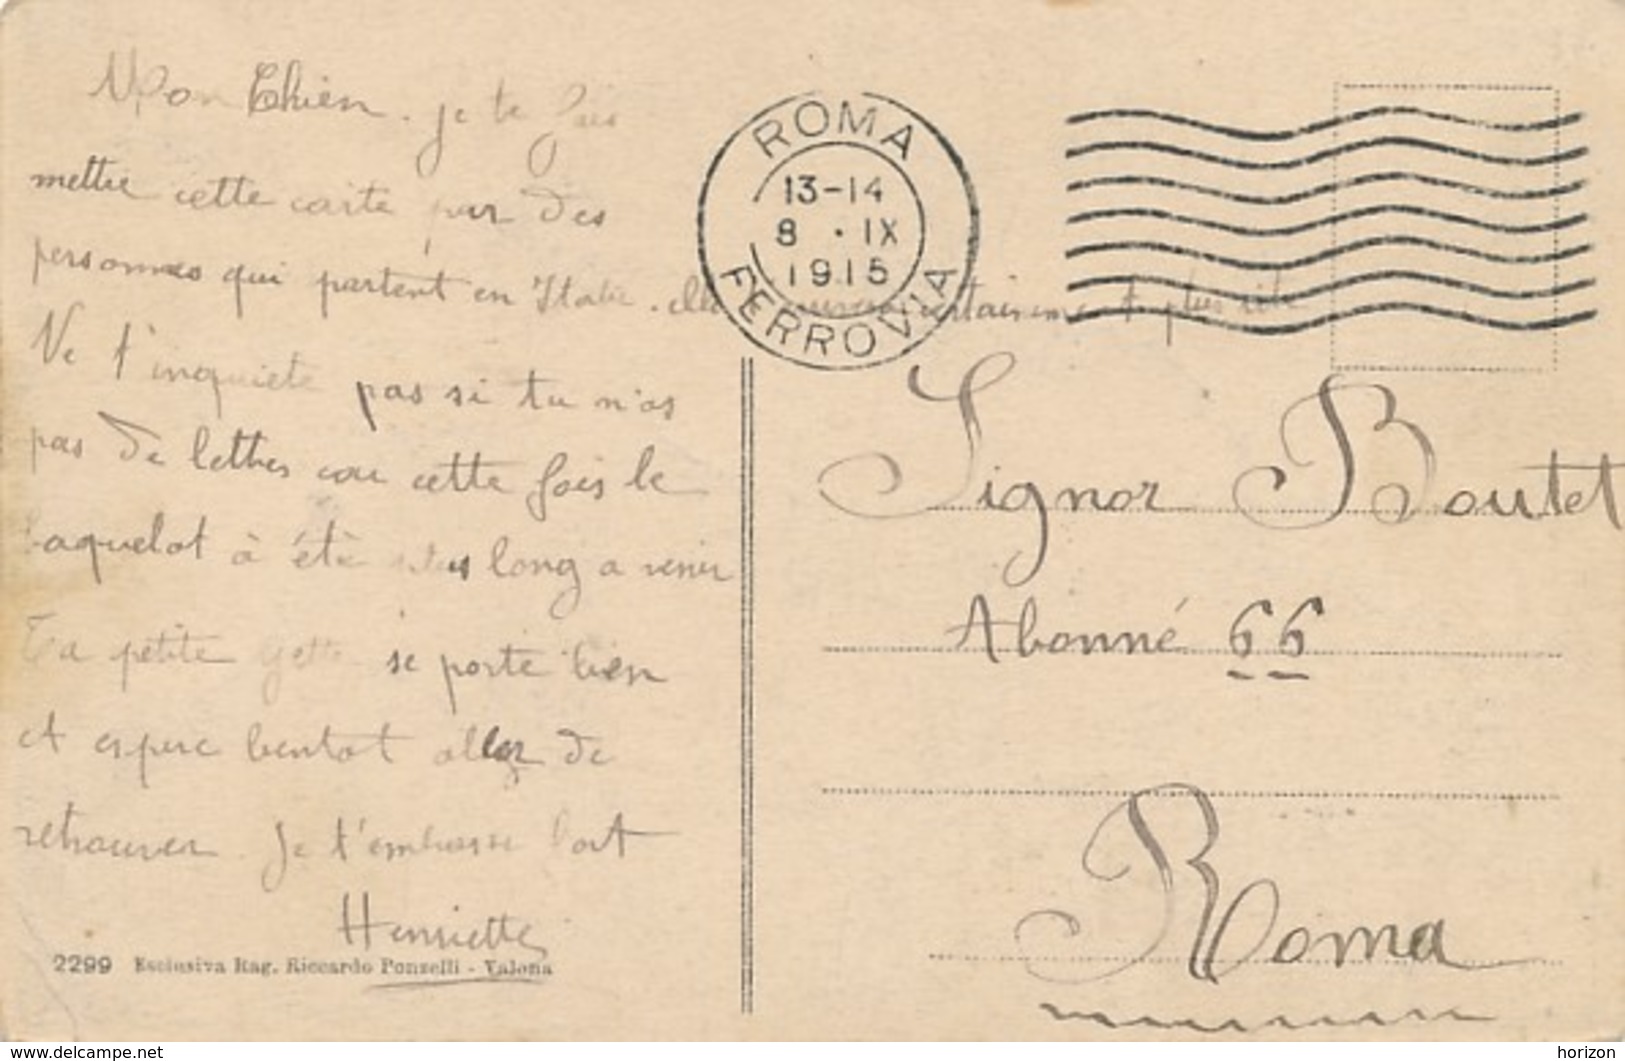 Mon Chien. je te fais
mettre cette carte par des
personnes qui partent en Italie. elle certainement plus vite
Ne t'inquiete pas si tu n'as
pas de lettres car cette fois le
paquebot à été plus long a venir
Ta petite se porte bien
et espere bentot aller te
retrouver. Je t'embrasse fort
Henriette
2299 Esclusiva Rag. Riccardo Ponzelli - Valona
ROMA
13-14
8 · IX
1915
FERROVIA
Signor Boutet
Abonné 66
Roma
www.delcampe.net
horizon